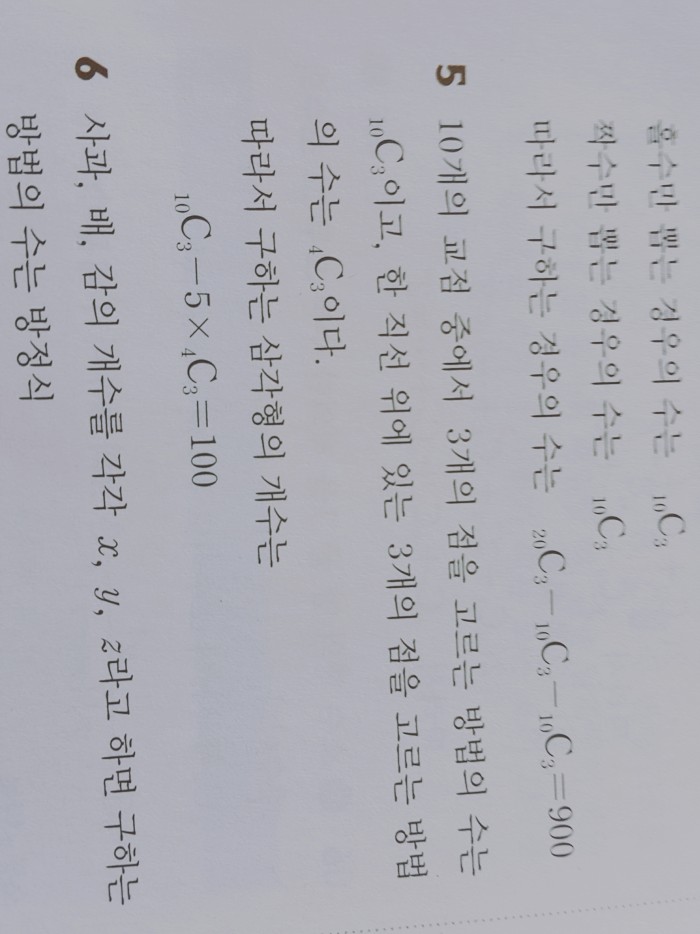 홀수만 뽑는 경우의 수는 ₁₀C₃
짝수만 뽑는 경우의 수는 ₁₀C₃
따라서 구하는 경우의 수는 ₂₀C₃-₁₀C₃-₁₀C₃=900
5 10개의 교점 중에서 3개의 점을 고르는 방법의 수는
₁₀C₃이고, 한 직선 위에 있는 3개의 점을 고르는 방법
의 수는 ₄C₃이다.
따라서 구하는 삼각형의 개수는
₁₀C₃-5×₄C₃=100
6 사과, 배, 감의 개수를 각각 x, y, z라고 하면 구하는
방법의 수는 방정식